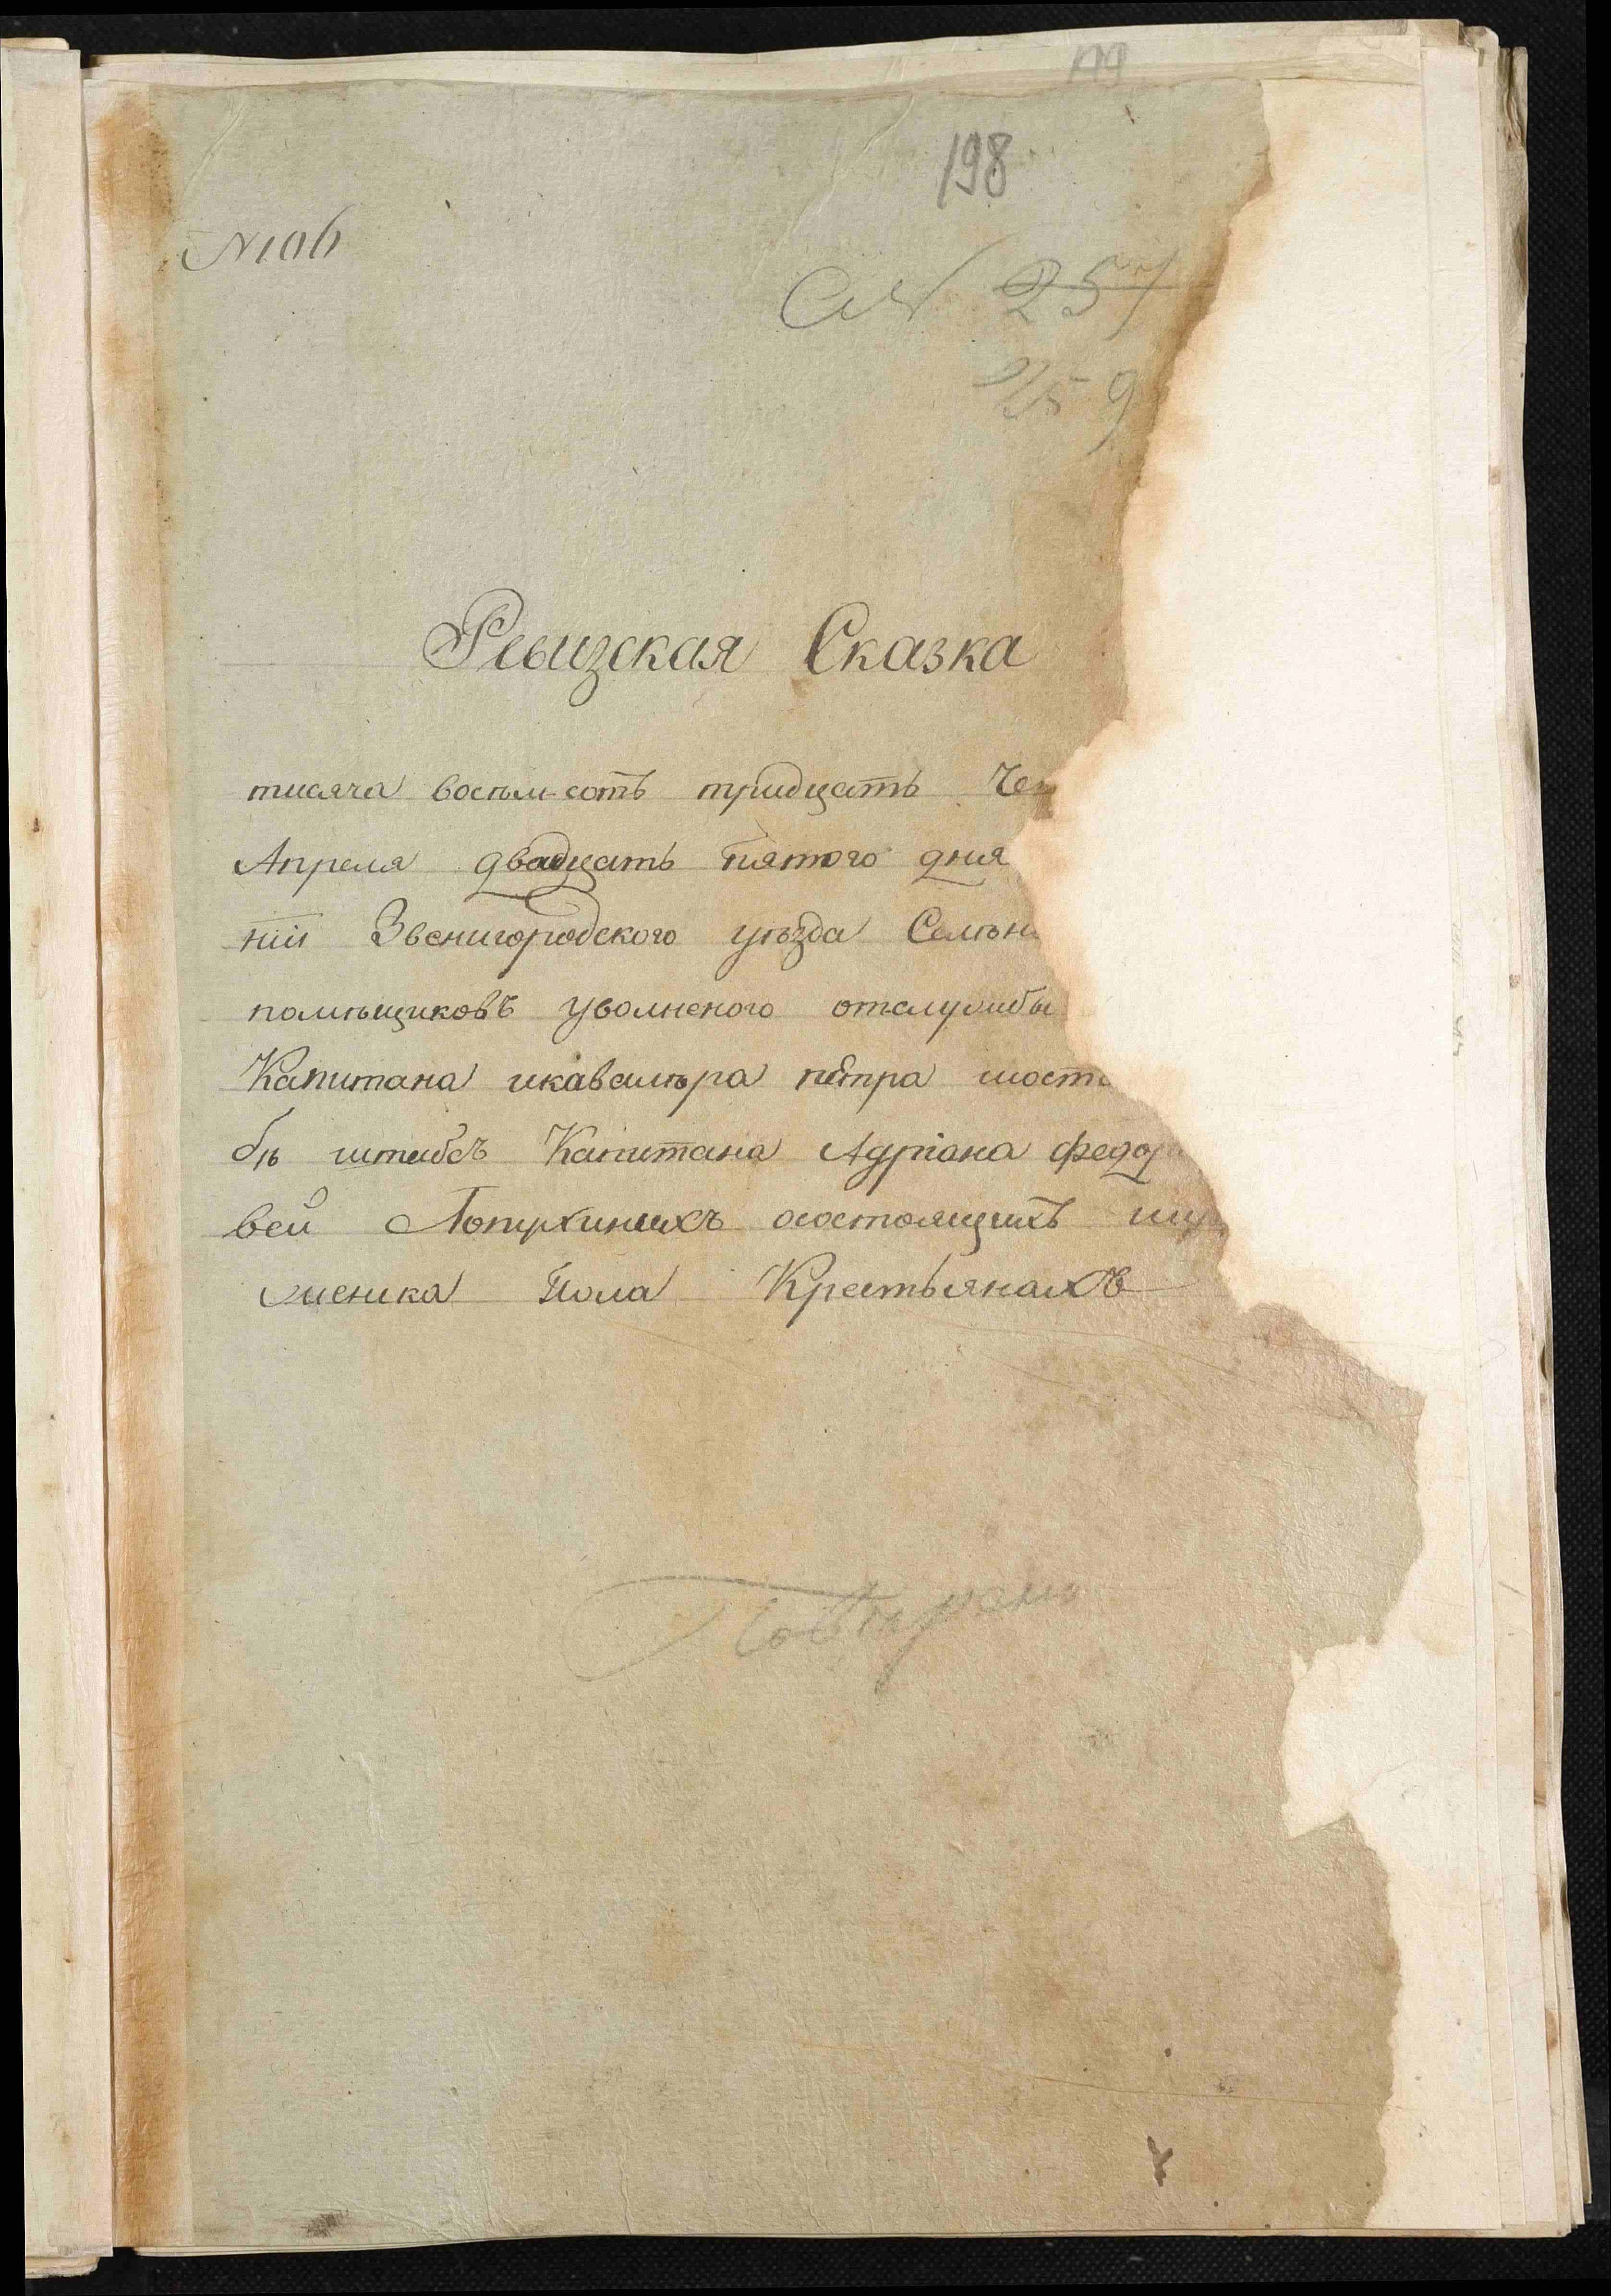 198
№ 106
№ 257
259
Ревизская Сказка
тисяча восѣмъ сотъ тридцать Чет
Апреля двадцать пятого дня
ніи Звенигородского уѣзда Семѣн
помѣщиковъ уволненого отслужбы
Капитана икавалѣра пётра
бѣ штабсъ Капитана Адріана федор
вей Лопухиныхъ осостоящихъ
женска пола Крестьянахъ